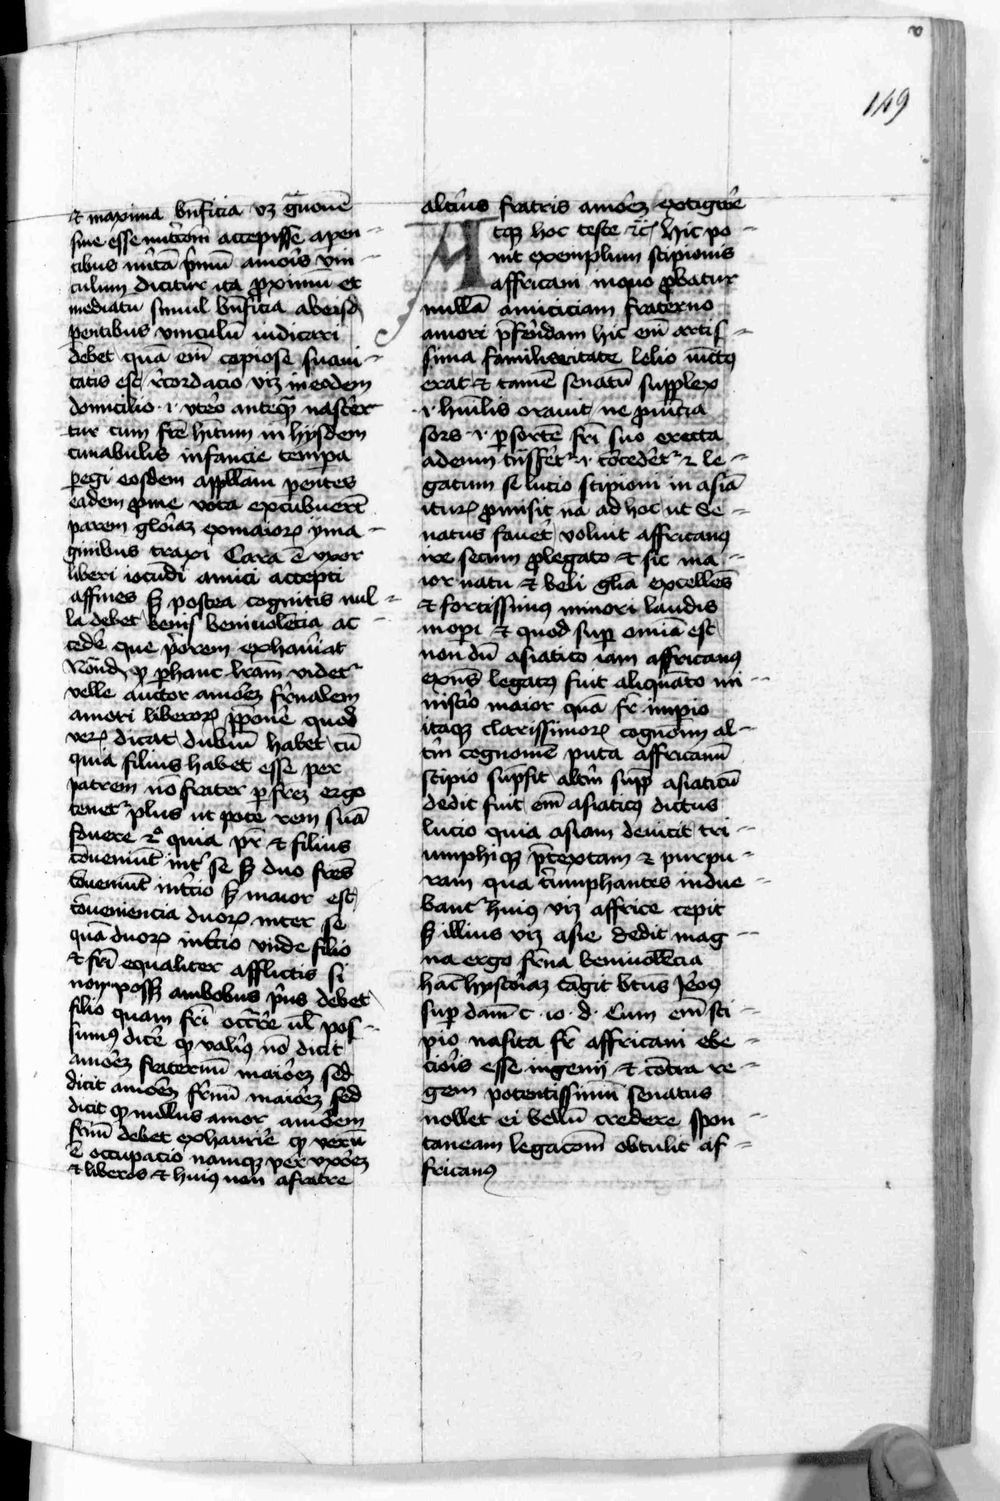 149
et maxima bn̄ficia vz
siue esse nutricem accepisse apen=
tibus primū amoris vin=
culum dicitur ita proximū et
mediatū simul bn̄ficia ab eisdē
pentibus vinculū iudicari
debet quā em̄ copiose suaui=
tatis est rcordacio viz in eodem
domicilio .i. vtero anteq̄ nascer
tur cum frē in hysdem
cunabulis infancie tempa
pegi eosdem appllam pentes
eadem pro me vota excubuerūt
parem gloriaz ex maioꝝ yma=
ginibus traxi Cara ē vxor
liberi iocundi amici accepti
affines sꝫ postea cognitis nul=
la debet beniuolēcia ac=
cedere que priorem exhauriat
Notand qꝫ per hanc lrām videtr
velle auctor amorez frn̄alem
amori liberoꝝ prponere quod
veꝝ dicat dubiū habet cū
quia filius habet esse per
patrem nō frater per frēz ergo
tenetr plus ut pote rem suā
fouere quia pr̄ et filius
cōueniūt intr se sꝫ duo frēs
cōueniūt in tercio sꝫ maior est
cōueniencia duoꝝ inter se
quā duoꝝ in tercio vnde filio
et frī equaliter afflictis si
non possꝫ ambobus prius debet
filio quam frī vl̄ pos=
sumus dicere qꝫ valerius nō dicit
amorez fraternū maiorez sed
dicit amorez frn̄m maiorez sed
dicit qꝫ nullus amor amorem
frn̄m debet exhaurire qꝫ verū
ē occupacio namqꝫ per vxorez
et liberos et huius non a fratre
altrius fratris amorez extigwere
Atqꝫ hoc teste etc hic po=
nit exemplum scipionis
affricani in quo probatur
nullā amiciciam fraterno
amori prferendam hic em̄ artis=
sima familiaritate lelio iunctꝰ
erat et tamē senatū supplex
.i. humilis orauit ne prouincia
sors .i. per sortē frī suo erecta
ad eum trāsferetr .i. cōcederetr et le=
gatum se lucio scipioni in asiā
ituꝝ promisit nā ad hoc ut se=
natus faueret voluit affricanꝰ
ire secum pro legato et sic ma=
ior natu et belli glia excellēs
et fortissimꝰ minori laudis
inopi et quod super omnia est
non dū asiatico iam affricanꝰ
exn̄s legatꝰ fuit aliquāto mi=
nisterio maior quā fr̄ imperio
itaqꝫ clarissimoꝝ cognomū al=
trm̄ cognomē puta affricanū
scipio supsit altrm̄ supp asiaticū
dedit fuit em̄ asiaticꝰ dictus
lucio quia asiam deuicit tri=
umphiqꝫ prtextam et purpu=
ram qua triumphantes indue=
bantr huiꝰ viz affrice cepit
sꝫ illius viz asie dedit mag=
na ergo frn̄a beniuolēcia
hāc hystoriaz tāgit btūs Jeroꝰ
super dam̄ c. 10. d. Cum em̄ sci=
pio nasica fr̄ affricani ebe=
cioris esse ingenij et cōtra re=
gem potentissimū senatus
nollet ei bellū credere spon=
taneam legacōm̄ obtulit af=
fricanꝰ